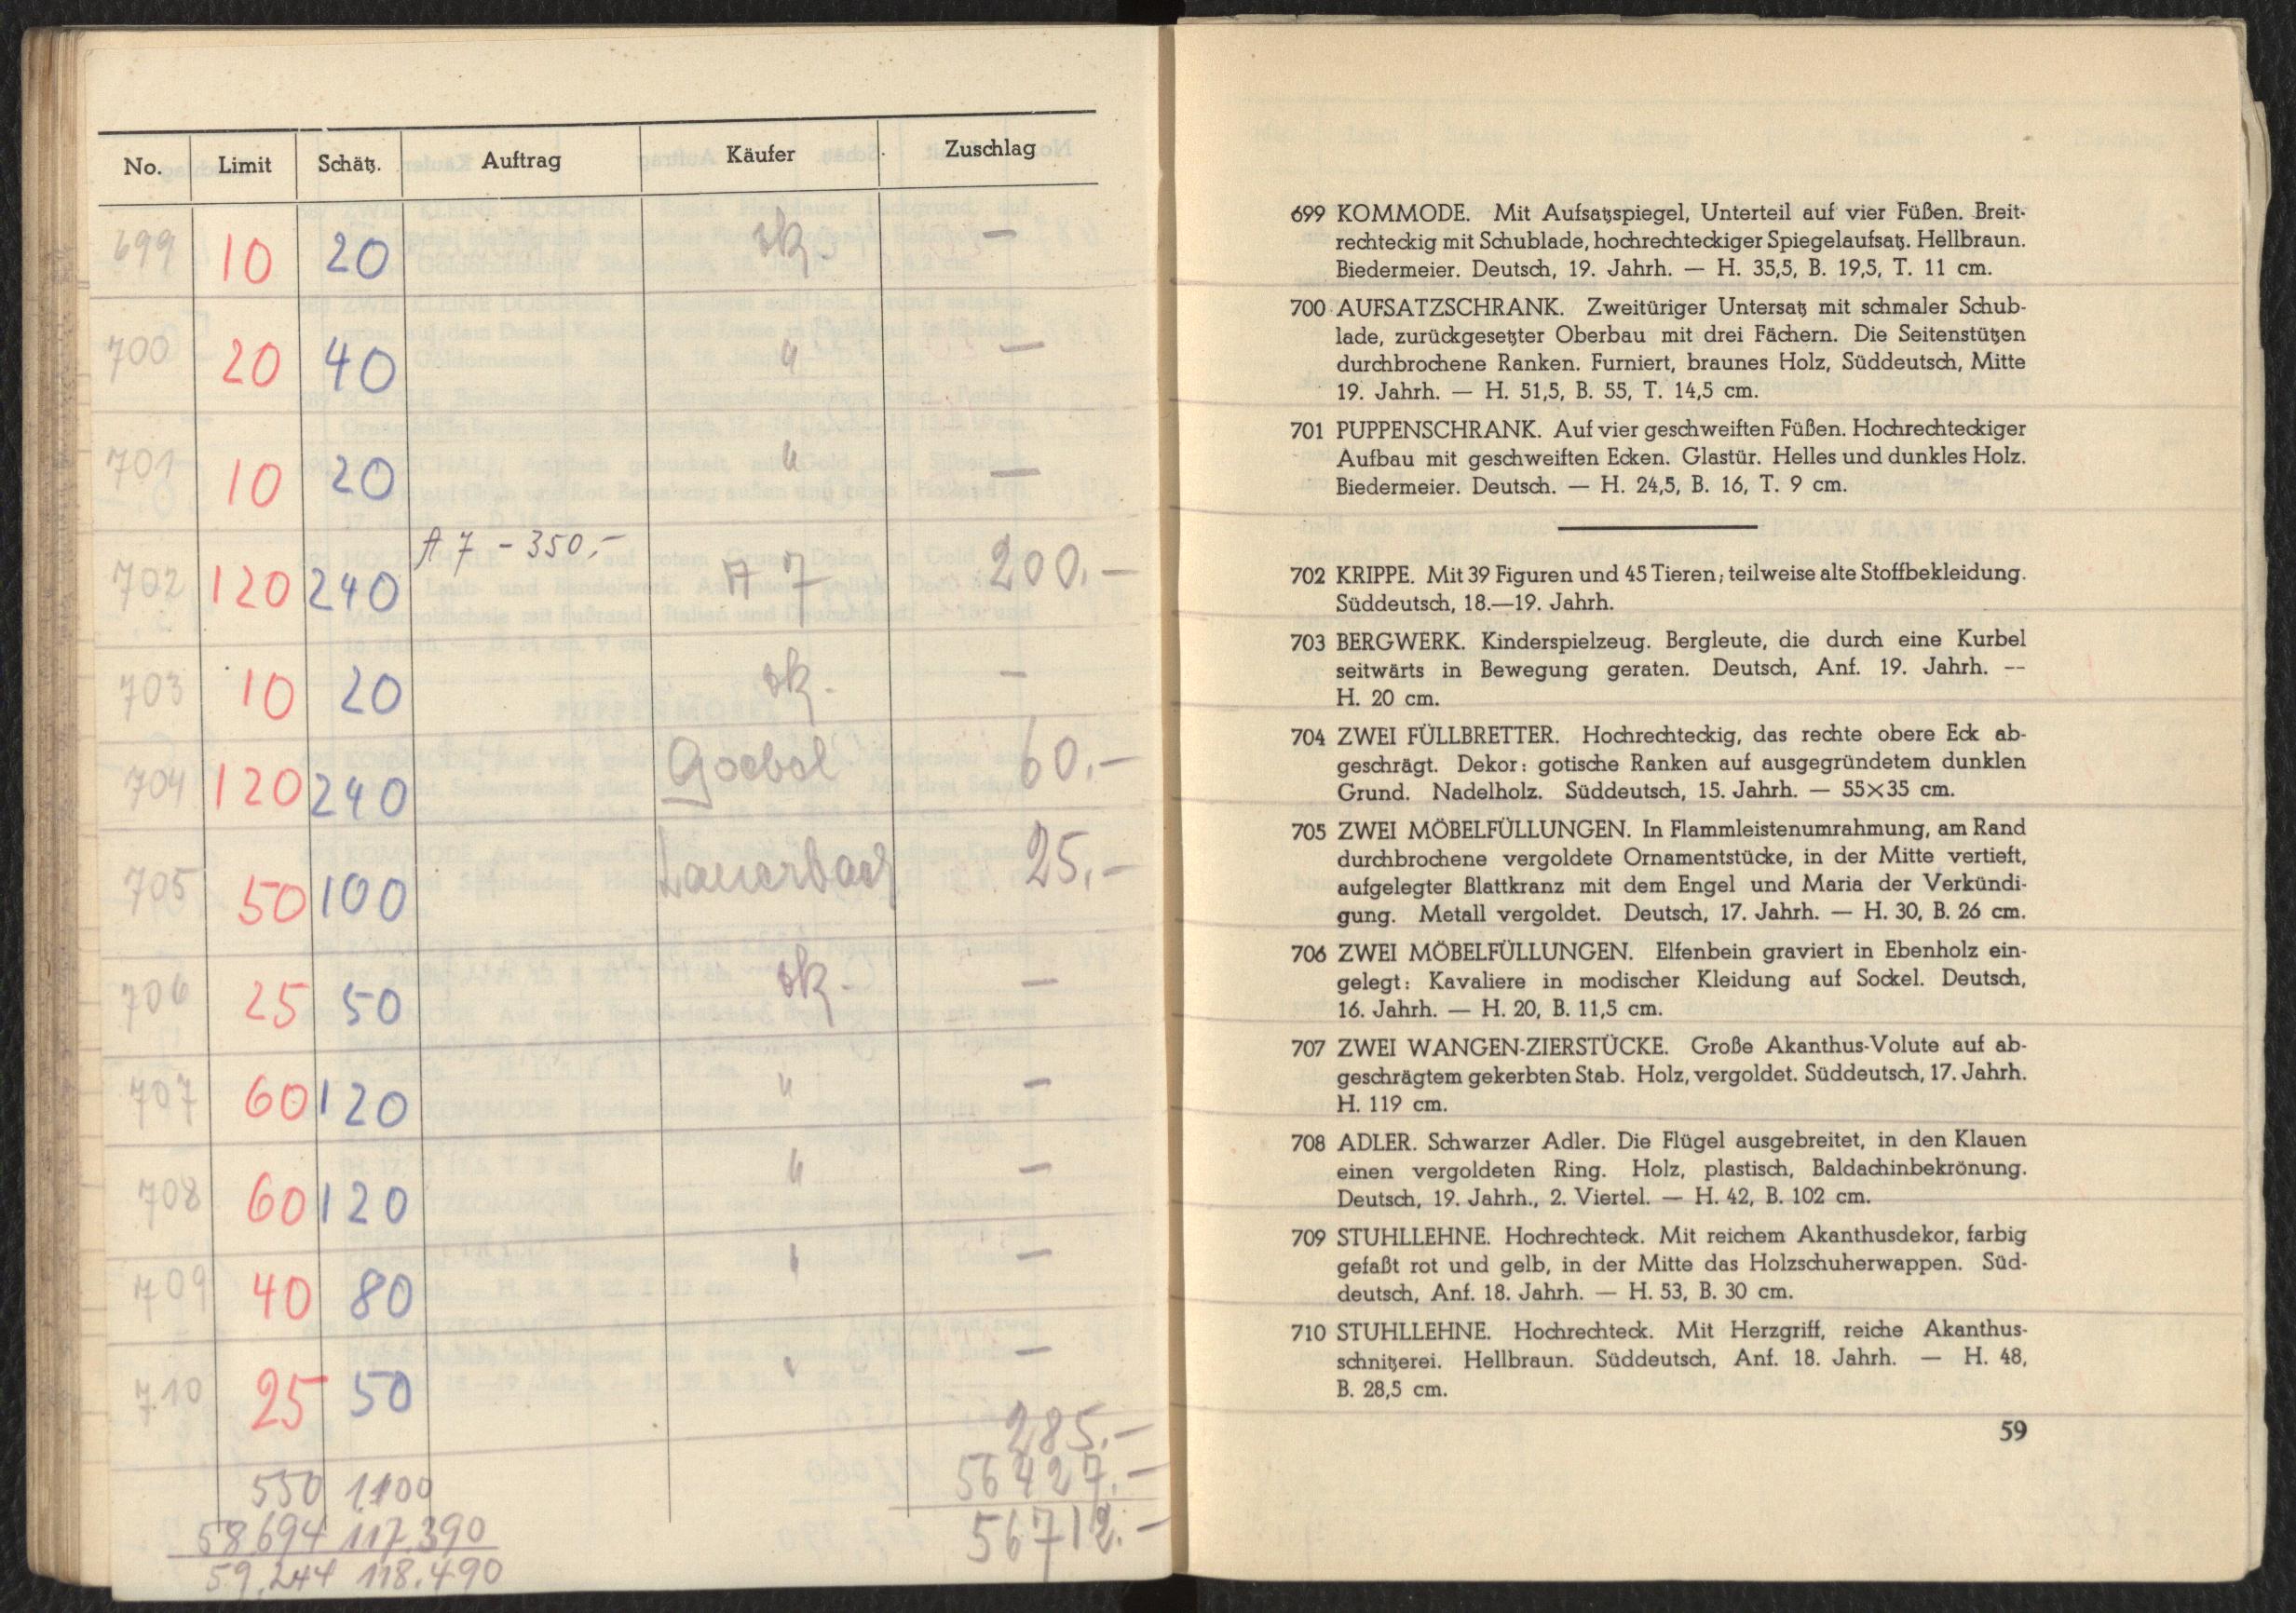 No. Limit Schätz. Auftrag Käufer Zuschlag
699 10 20 sk. —
700 20 40 " —
701 10 20 " —
A 7 - 350,-
702 120 240 A 7 200.—
703 10 20 sk. —
704 120 240 Goebel 60.—
705 50 100 25.—
706 25 50 sk. —
707 60 120 " —
708 60 120 " —
709 40 80 " —
710 25 50 " —
285.—
550 1100 56427.—
58694 117.390 56712.—
59.244 118.490
699 KOMMODE. Mit Aufsatzspiegel, Unterteil auf vier Füßen. Breit-
rechteckig mit Schublade, hochrechteckiger Spiegelaufsatz. Hellbraun.
Biedermeier. Deutsch, 19. Jahrh. — H. 35,5, B. 19,5, T. 11 cm.
700 AUFSATZSCHRANK. Zweitüriger Untersatz mit schmaler Schub-
lade, zurückgesetzter Oberbau mit drei Fächern. Die Seitenstützen
durchbrochene Ranken. Furniert, braunes Holz, Süddeutsch, Mitte
19. Jahrh. — H. 51,5, B. 55, T. 14,5 cm.
701 PUPPENSCHRANK. Auf vier geschweiften Füßen. Hochrechteckiger
Aufbau mit geschweiften Ecken. Glastür. Helles und dunkles Holz.
Biedermeier. Deutsch. — H. 24,5, B. 16, T. 9 cm.
702 KRIPPE. Mit 39 Figuren und 45 Tieren; teilweise alte Stoffbekleidung.
Süddeutsch, 18.—19. Jahrh.
703 BERGWERK. Kinderspielzeug. Bergleute, die durch eine Kurbel
seitwärts in Bewegung geraten. Deutsch, Anf. 19. Jahrh. —
H. 20 cm.
704 ZWEI FÜLLBRETTER. Hochrechteckig, das rechte obere Eck ab-
geschrägt. Dekor: gotische Ranken auf ausgegründetem dunklen
Grund. Nadelholz. Süddeutsch, 15. Jahrh. — 55×35 cm.
705 ZWEI MÖBELFÜLLUNGEN. In Flammleistenumrahmung, am Rand
durchbrochene vergoldete Ornamentstücke, in der Mitte vertieft,
aufgelegter Blattkranz mit dem Engel und Maria der Verkündi-
gung. Metall vergoldet. Deutsch, 17. Jahrh. — H. 30, B. 26 cm.
706 ZWEI MÖBELFÜLLUNGEN. Elfenbein graviert in Ebenholz ein-
gelegt: Kavaliere in modischer Kleidung auf Sockel. Deutsch,
16. Jahrh. — H. 20, B. 11,5 cm.
707 ZWEI WANGEN-ZIERSTÜCKE. Große Akanthus-Volute auf ab-
geschrägtem gekerbten Stab. Holz, vergoldet. Süddeutsch, 17. Jahrh.
H. 119 cm.
708 ADLER. Schwarzer Adler. Die Flügel ausgebreitet, in den Klauen
einen vergoldeten Ring. Holz, plastisch, Baldachinbekrönung.
Deutsch, 19. Jahrh., 2. Viertel. — H. 42, B. 102 cm.
709 STUHLLEHNE. Hochrechteck. Mit reichem Akanthusdekor, farbig
gefaßt rot und gelb, in der Mitte das Holzschuherwappen. Süd-
deutsch, Anf. 18. Jahrh. — H. 53, B. 30 cm.
710 STUHLLEHNE. Hochrechteck. Mit Herzgriff, reiche Akanthus-
schnitzerei. Hellbraun. Süddeutsch, Anf. 18. Jahrh. — H. 48,
B. 28,5 cm.
59